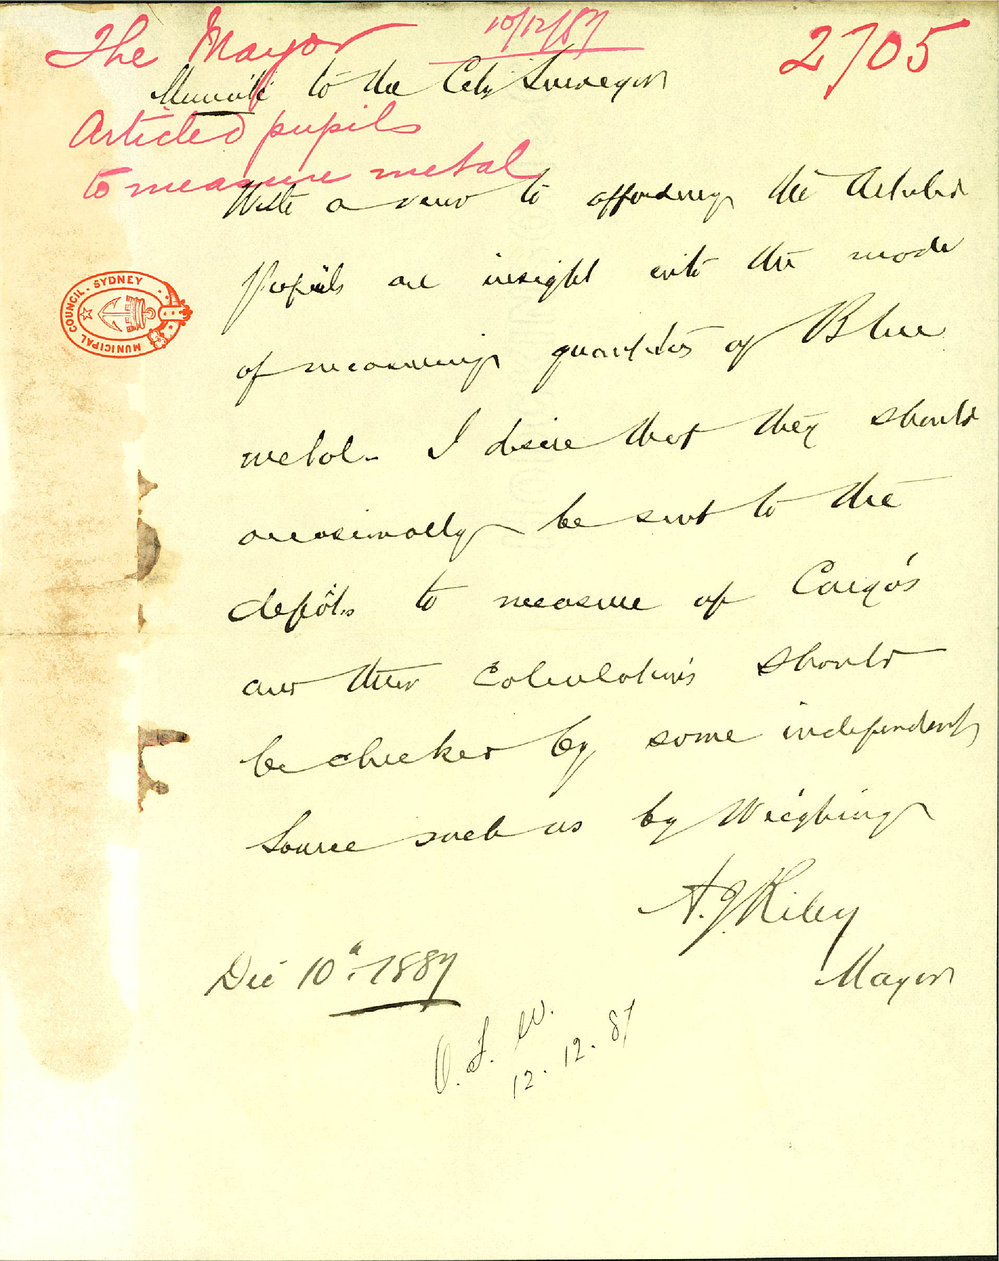 The Mayor
10/12/87
2705
Minute to the City Surveyor
Articled pupils
to measure metal
With a view to affording the Articled
Pupils an insight into the mode
of measuring quantities of Blue
metal. I desire that they should
occasionally be sent to the
depôts to measure up Cargo's
and their Calculations should
be checked by some independent
Source such as by Weighing
A.J. Riley
Mayor
Dec 10th 1887
12.12.87
MUNICIPAL COUNCIL. SYDNEY